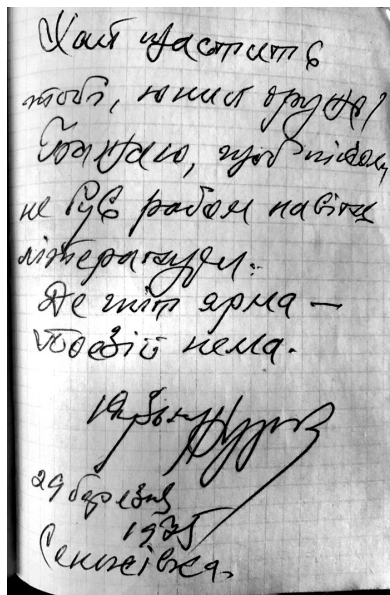 Хай щастить
тобі, юний друже!
Бажаю, щоб ніколи
не був рабом навіть
літератури.
Де гніт ярма —
поезії нема.
29 березня
1975